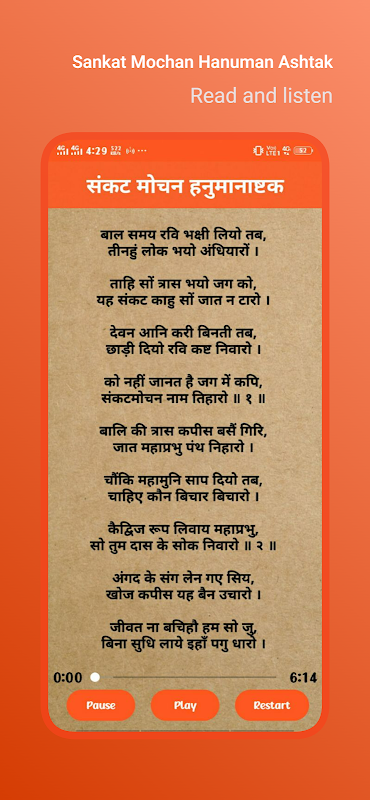 Sankat Mochan Hanuman Ashtak
Read and listen
4:29
संकट मोचन हनुमानाष्टक
बाल समय रवि भक्षी लियो तब,
तीनहुं लोक भयो अंधियारों ।
ताहि सों त्रास भयो जग को,
यह संकट काहु सों जात न टारो ।
देवन आनि करी बिनती तब,
छाड़ी दियो रवि कष्ट निवारो ।
को नहीं जानत है जग में कपि,
संकटमोचन नाम तिहारो ॥ १ ॥
बालि की त्रास कपीस बसैं गिरि,
जात महाप्रभु पंथ निहारो ।
चौंकि महामुनि साप दियो तब,
चाहिए कौन बिचार बिचारो ।
कैद्विज रूप लिवाय महाप्रभु,
सो तुम दास के सोक निवारो ॥ २ ॥
अंगद के संग लेन गए सिय,
खोज कपीस यह बैन उचारो ।
जीवत ना बचिहौ हम सो जु,
बिना सुधि लाये इहाँ पगु धारो ।
0:00 6:14
Pause Play Restart